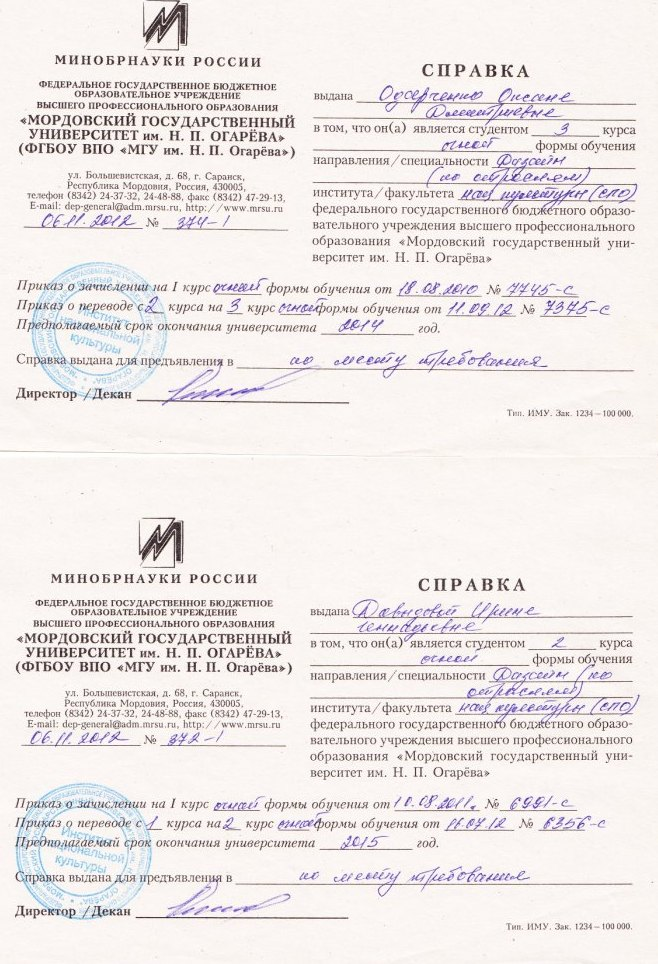 МИНОБРНАУКИ РОССИИ
ФЕДЕРАЛЬНОЕ ГОСУДАРСТВЕННОЕ БЮДЖЕТНОЕ
ОБРАЗОВАТЕЛЬНОЕ УЧРЕЖДЕНИЕ
ВЫСШЕГО ПРОФЕССИОНАЛЬНОГО ОБРАЗОВАНИЯ
«МОРДОВСКИЙ ГОСУДАРСТВЕННЫЙ
УНИВЕРСИТЕТ им. Н. П. ОГАРЁВА»
(ФГБОУ ВПО «МГУ им. Н. П. Огарёва»)
ул. Большевистская, д. 68, г. Саранск,
Республика Мордовия, Россия, 430005,
телефон (8342) 24-37-32, 24-48-88, факс (8342) 47-29-13,
E-mail: dep-general@adm.mrsu.ru, http://www.mrsu.ru
06.11.2012 № 374-1
СПРАВКА
выдана Оксане
Дмитриевне
в том, что он(а) является студентом 3 курса
очной формы обучения
направления/специальности Дизайн
(по отраслям)
института/факультета нац культуры (СПО)
федерального государственного бюджетного образо-
вательного учреждения высшего профессионального
образования «Мордовский государственный уни-
верситет им. Н. П. Огарёва»
Приказ о зачислении на I курс очной формы обучения от 18.08.2010 № 7745-с
Приказ о переводе с 2 курса на 3 курс очной формы обучения от 11.09.12 № 7375-с
Предполагаемый срок окончания университета 2014 год.
Справка выдана для предъявления в по месту требования
Директор / Декан
Институт
национальной
культуры
Тип. ИМУ. Зак. 1234–100 000.
МИНОБРНАУКИ РОССИИ
ФЕДЕРАЛЬНОЕ ГОСУДАРСТВЕННОЕ БЮДЖЕТНОЕ
ОБРАЗОВАТЕЛЬНОЕ УЧРЕЖДЕНИЕ
ВЫСШЕГО ПРОФЕССИОНАЛЬНОГО ОБРАЗОВАНИЯ
«МОРДОВСКИЙ ГОСУДАРСТВЕННЫЙ
УНИВЕРСИТЕТ им. Н. П. ОГАРЁВА»
(ФГБОУ ВПО «МГУ им. Н. П. Огарёва»)
ул. Большевистская, д. 68, г. Саранск,
Республика Мордовия, Россия, 430005,
телефон (8342) 24-37-32, 24-48-88, факс (8342) 47-29-13,
E-mail: dep-general@adm.mrsu.ru, http://www.mrsu.ru
06.11.2012 № 372-1
СПРАВКА
выдана Давыдовой Ирине
Геннадьевне
в том, что он(а) является студентом 2 курса
очной формы обучения
направления/специальности Дизайн (по
отраслям)
института/факультета нац культуры (СПО)
федерального государственного бюджетного образо-
вательного учреждения высшего профессионального
образования «Мордовский государственный уни-
верситет им. Н. П. Огарёва»
Приказ о зачислении на I курс очной формы обучения от 10.08.2011. № 6991-с
Приказ о переводе с 1 курса на 2 курс очной формы обучения от 11.07.12 № 6356-с
Предполагаемый срок окончания университета 2015 год.
Справка выдана для предъявления в по месту требования
Директор / Декан
Институт
национальной
культуры
Тип. ИМУ. Зак. 1234–100 000.